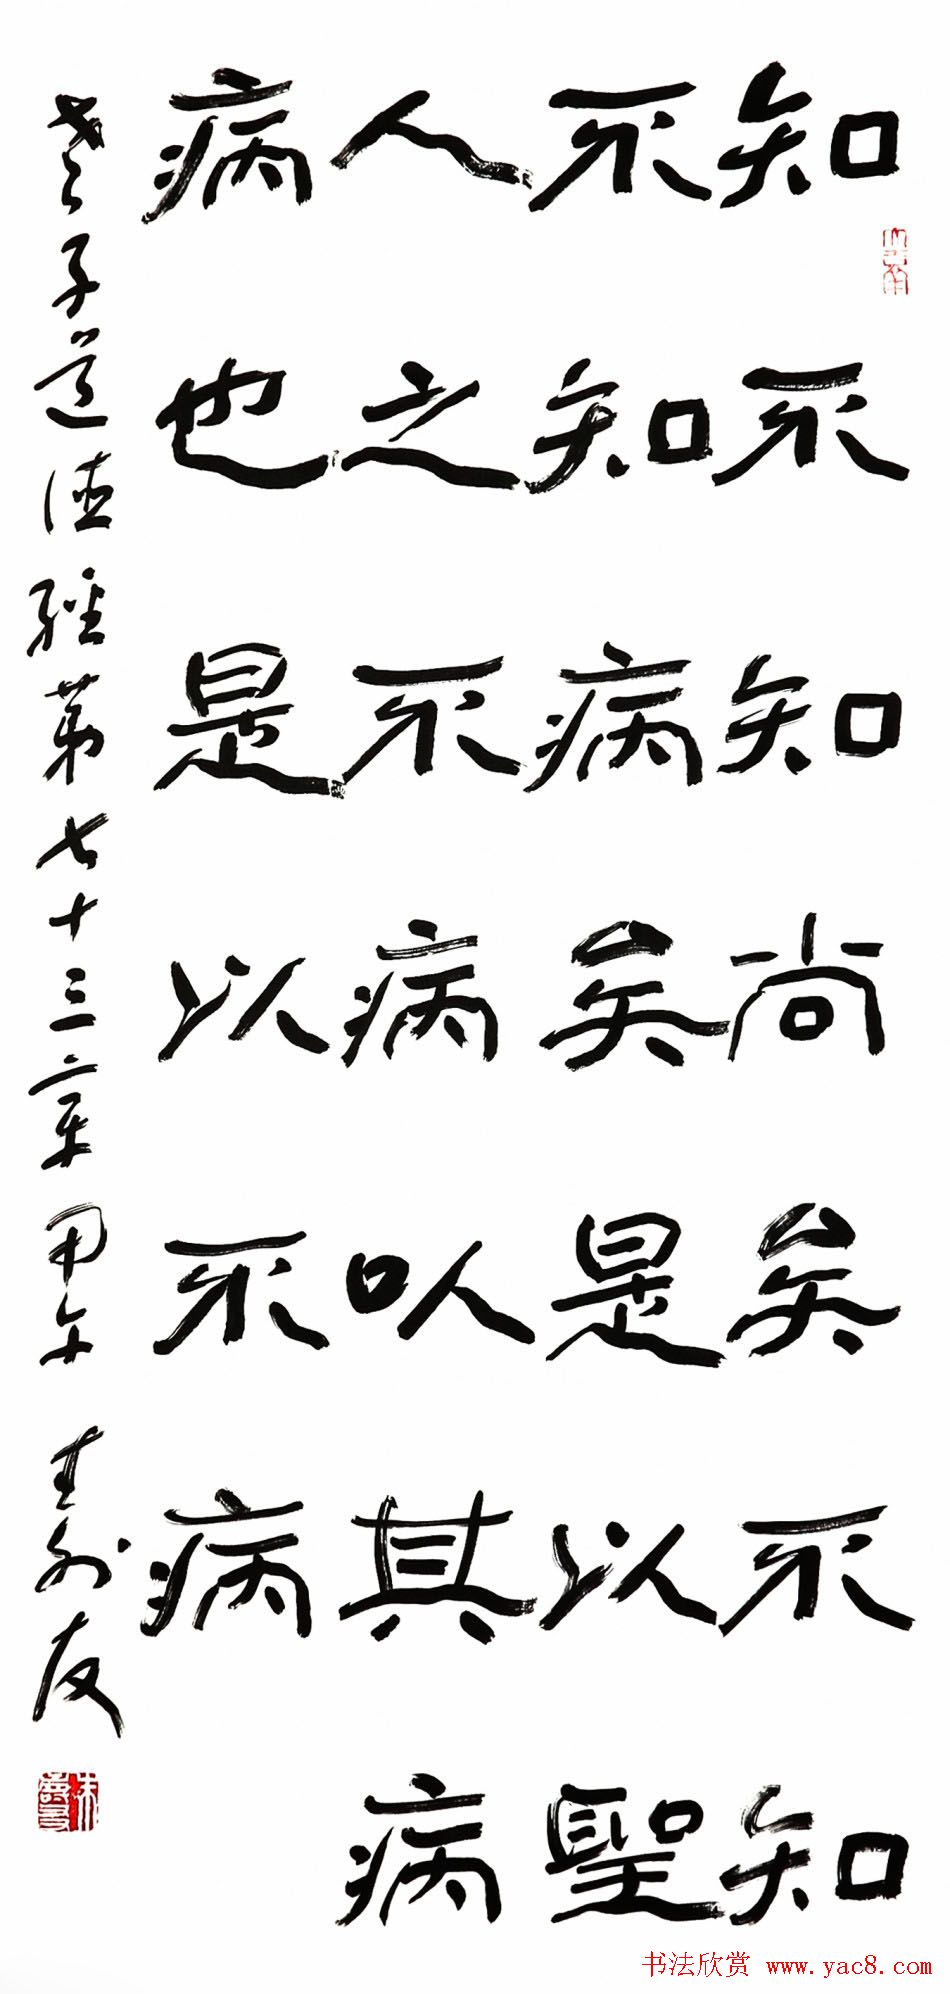 知不知尚矣不知
不知病矣是以聖
人之不病㕥其病
病也是以不病
老子道德經第七十三章甲午壽友
朱壽友
书法欣赏 www.yac8.com